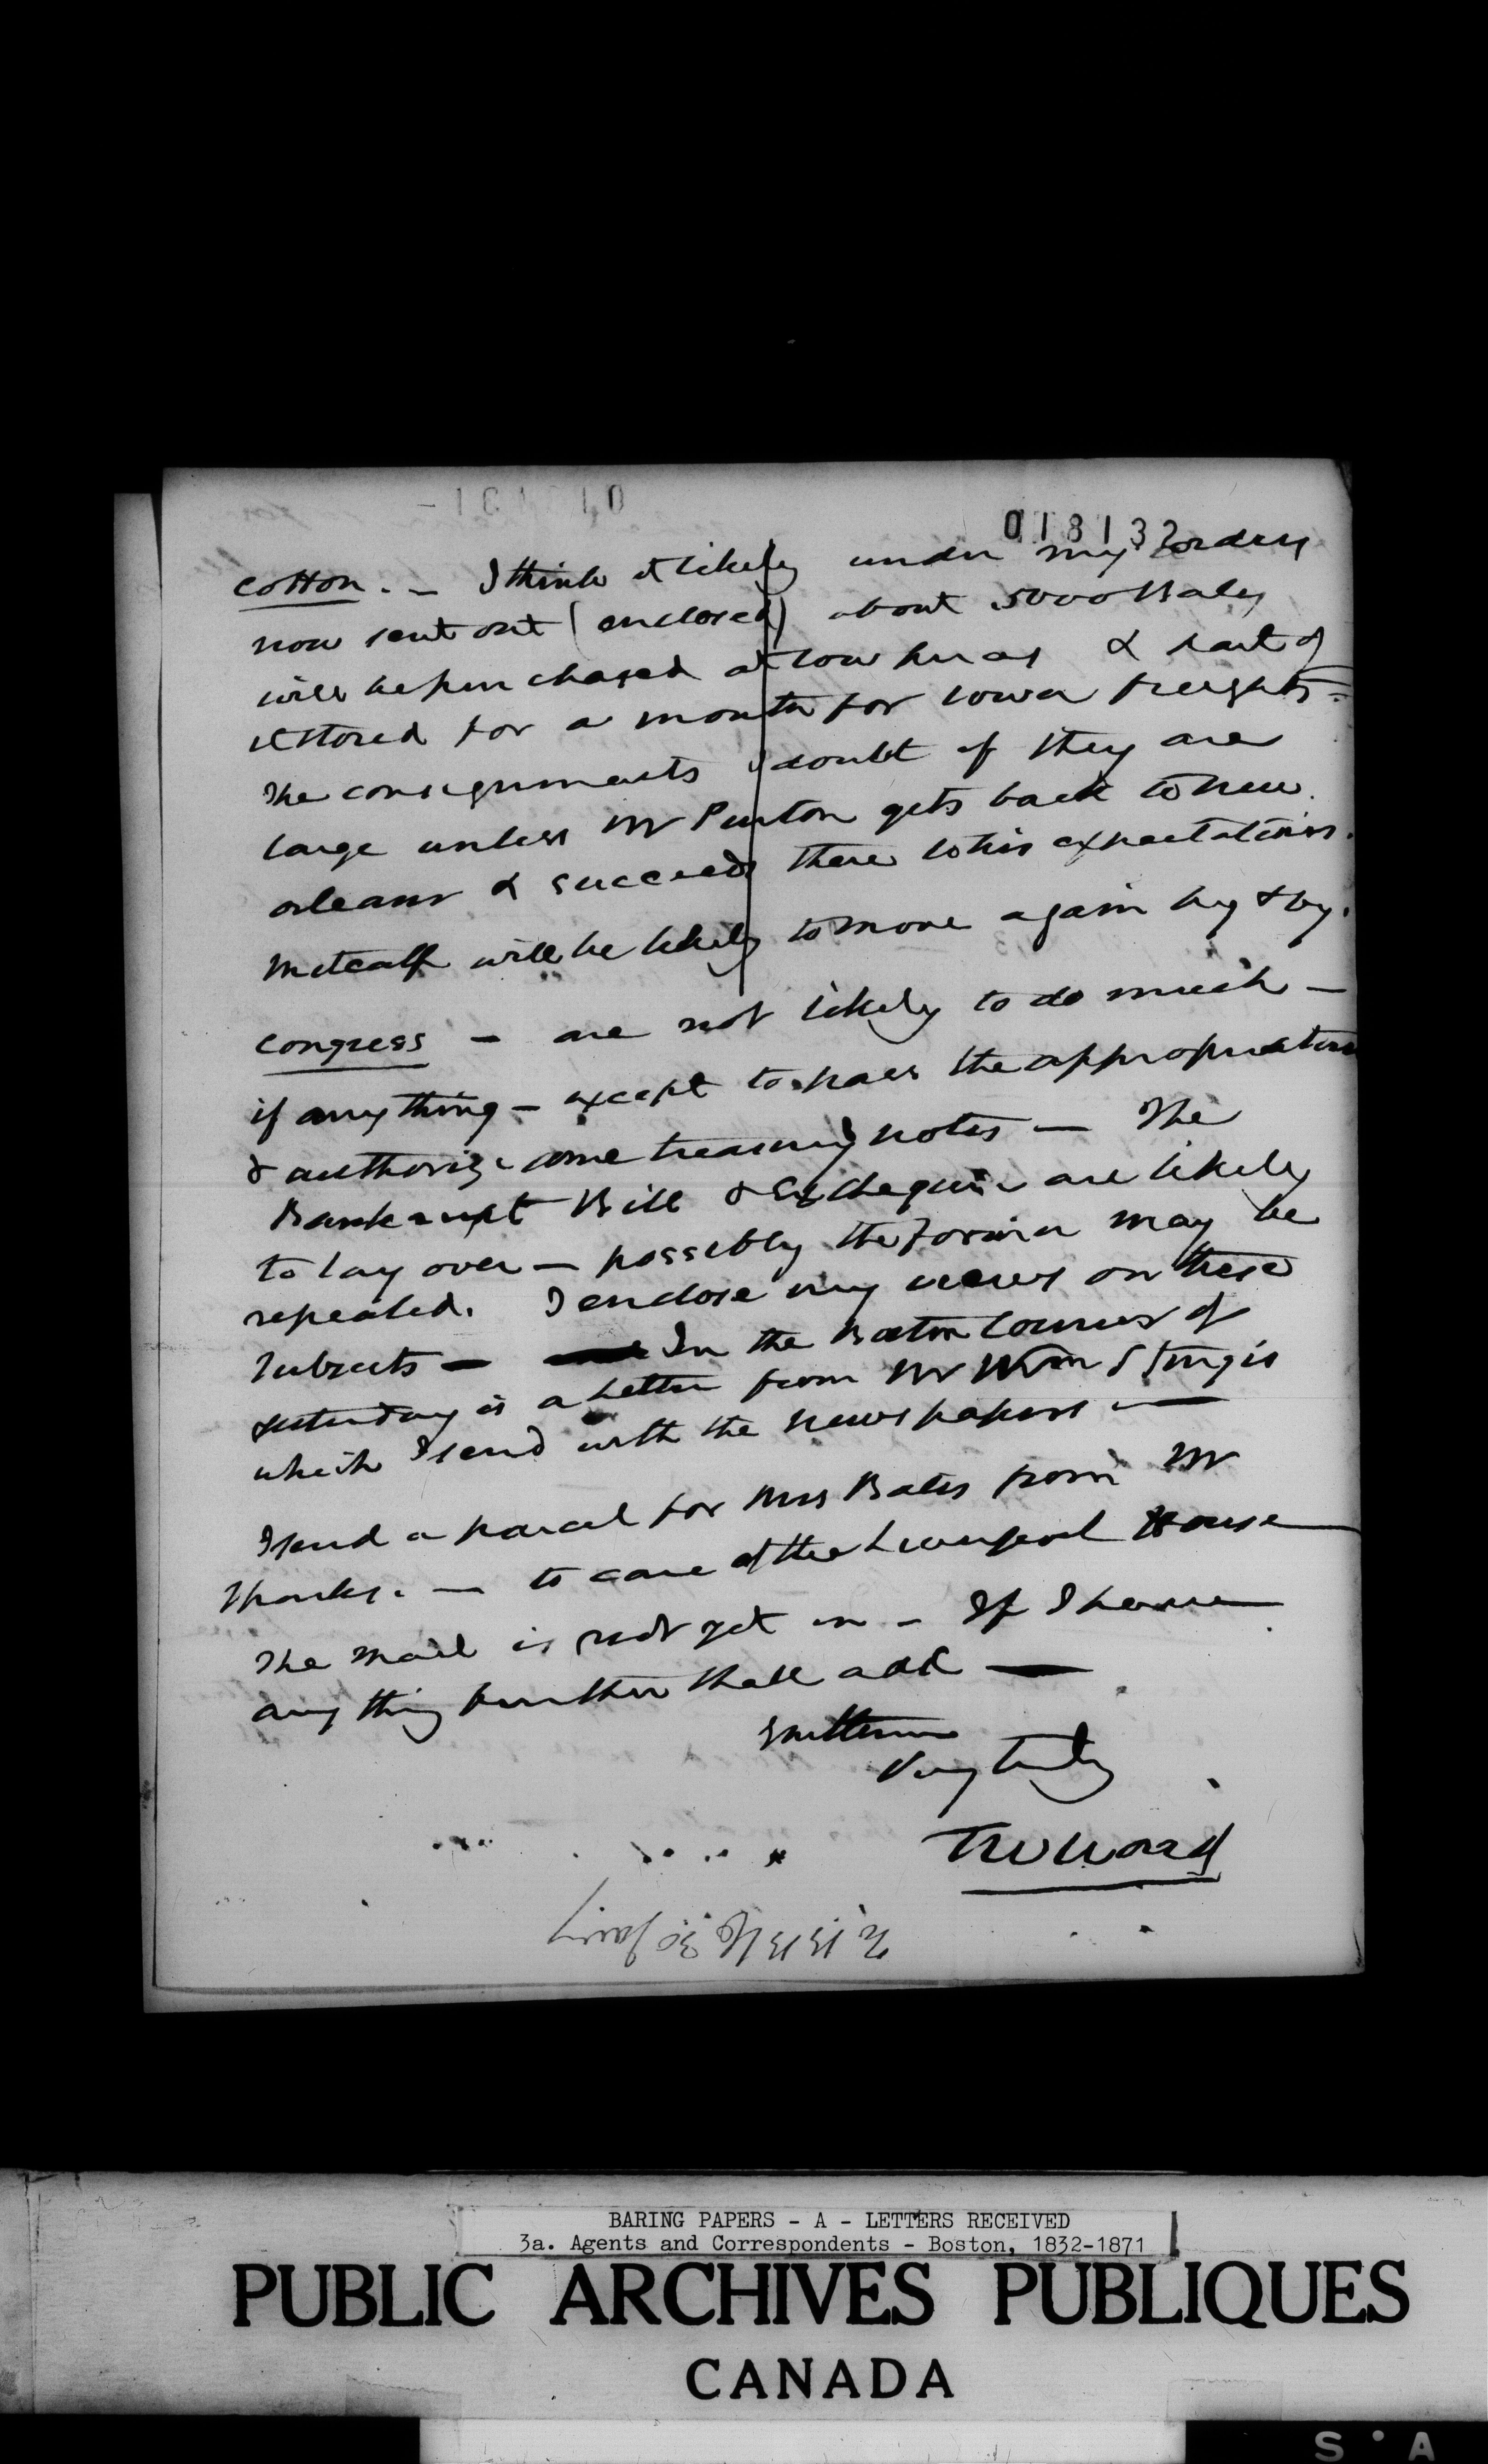 018132
cotton. - I think it likely under my orders
now sent out (enclosed) about 5000 Bales
will be purchased at low prices & part of
it stored for a month for lower freights -
The consignments I doubt if they are
large unless Mr Purton gets back to New
orleans & succeeds there to his expectations.
Metcalf will be likely to move again by & by.
congress - are not likely to do much -
if anything - except to pass the appropriations
& authorize some treasury notes - The
Bankrupt Bill & Exchequer are likely
to lay over - possibly the former may be
repealed. I enclose my views on these
subjects - In the Boston Courier of
yesterday is a Letter from Mr Wm Sturgis
which I send with the newspapers -
I send a parcel for Mrs Bates from Mr
Sparks. - to care of the Liverpool House
The Mail is not yet in - If I have
any thing further shall add -
Gentlemen
Very truly
TW Ward
BARING PAPERS - A - LETTERS RECEIVED
3a. Agents and Correspondents - Boston, 1832-1871
PUBLIC ARCHIVES PUBLIQUES
CANADA
S A